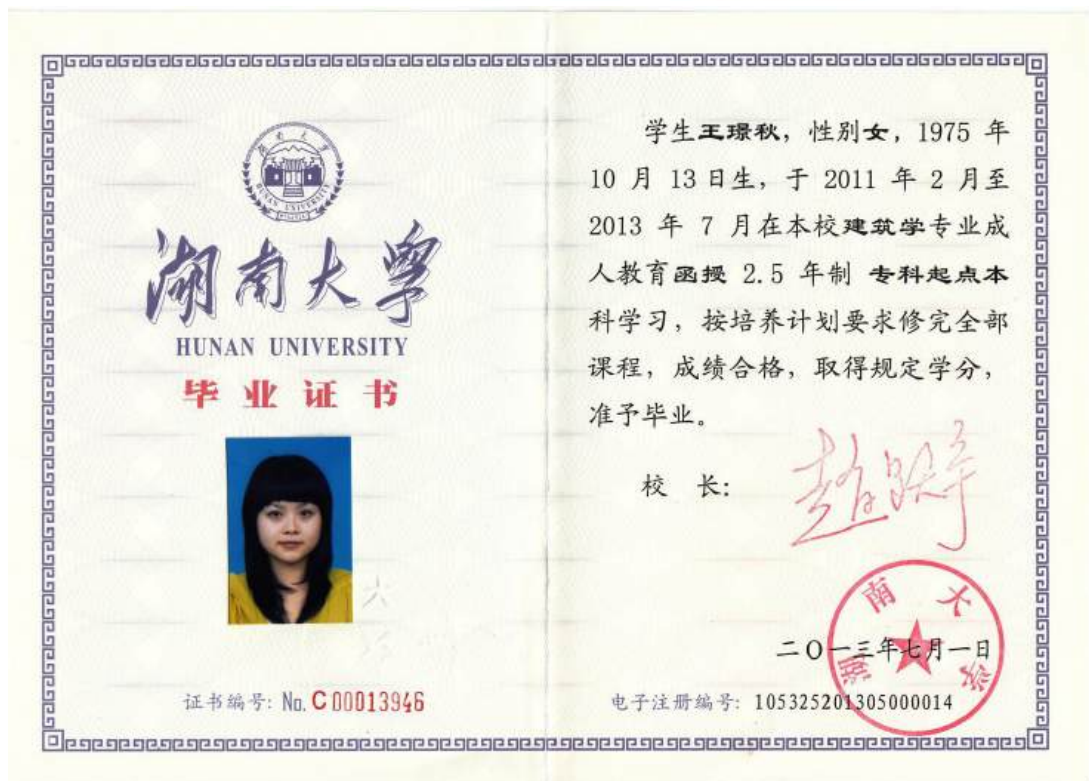 湖南大学
HUNAN UNIVERSITY
湖南大学
HUNAN UNIVERSITY
毕业证书
证书编号: No. C 00013946
学生王璟秋，性别女，1975 年
10 月 13 日生，于 2011 年 2 月至
2013 年 7 月在本校建筑学专业成
人教育函授 2.5 年制 专科起点本
科学习，按培养计划要求修完全部
课程，成绩合格，取得规定学分，
准予毕业。
校 长:
湖南大学
二〇一三年七月一日
电子注册编号: 105325201305000014